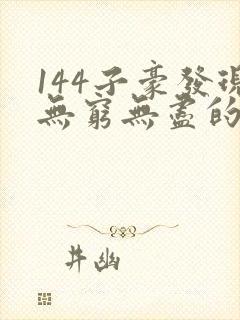 144子豪發現
無窮無盡的
井幽